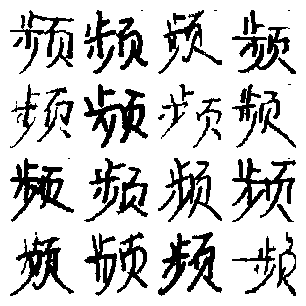 频频频频
频频频频
频频频频
频频频频